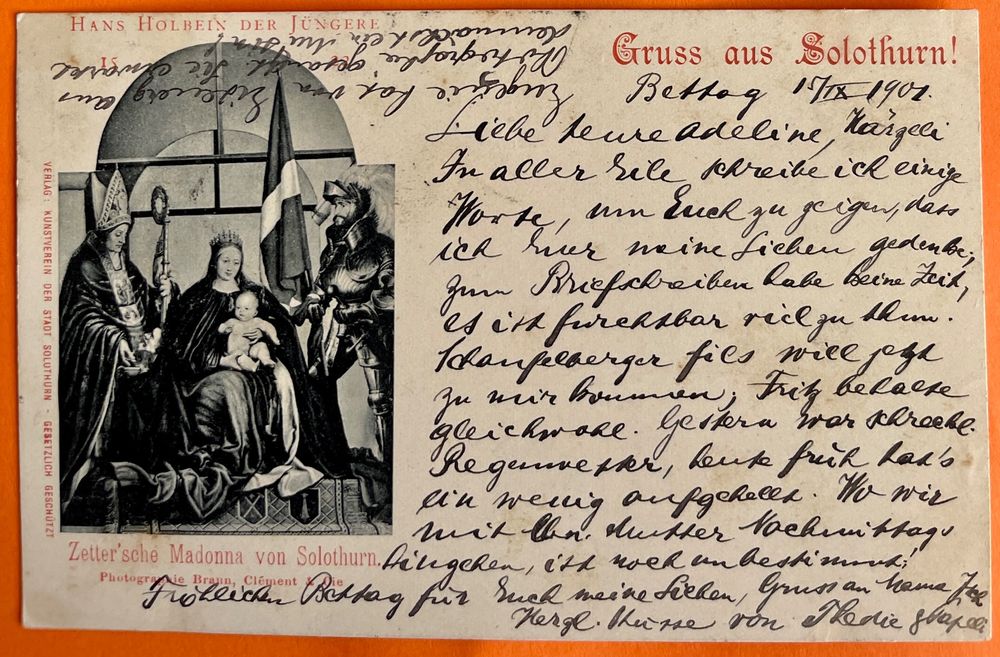 HANS HOLBEIN DER JÜNGERE
15
Gruss aus Solothurn!
Bettag 15/IX 1901.
Liebe teure Adeline, Härzeli
In aller Eile schreibe ich einige
Worte, um Euch zu zeigen, dass
ich Eurer meine Lieben gedenke;
zum Briefschreiben habe keine Zeit,
es ist furchtbar viel zu thun.
Schaufelberger fils will jetzt
zu mir kommen; Fritz behalte
gleichwohl. Gestern war schreckl.
Regenwetter, heute früh hat's
ein wenig aufgehellt. Wo wir
mit lbn. Mutter Nachmittags
hingehen, ist noch unbestimmt!
Fröhlichen Bettag für Euch meine Lieben, Gruss an Mama
Herzl. Küsse von Thedie
Eugenie hat von aus
Photographie gesandt. Sie erwartet
demnächst ein
VERLAG: KUNSTVEREIN DER STADT SOLOTHURN - GESETZLICH GESCHÜTZT
Zetter'sche Madonna von Solothurn.
Photographie Braun, Clément & Cie